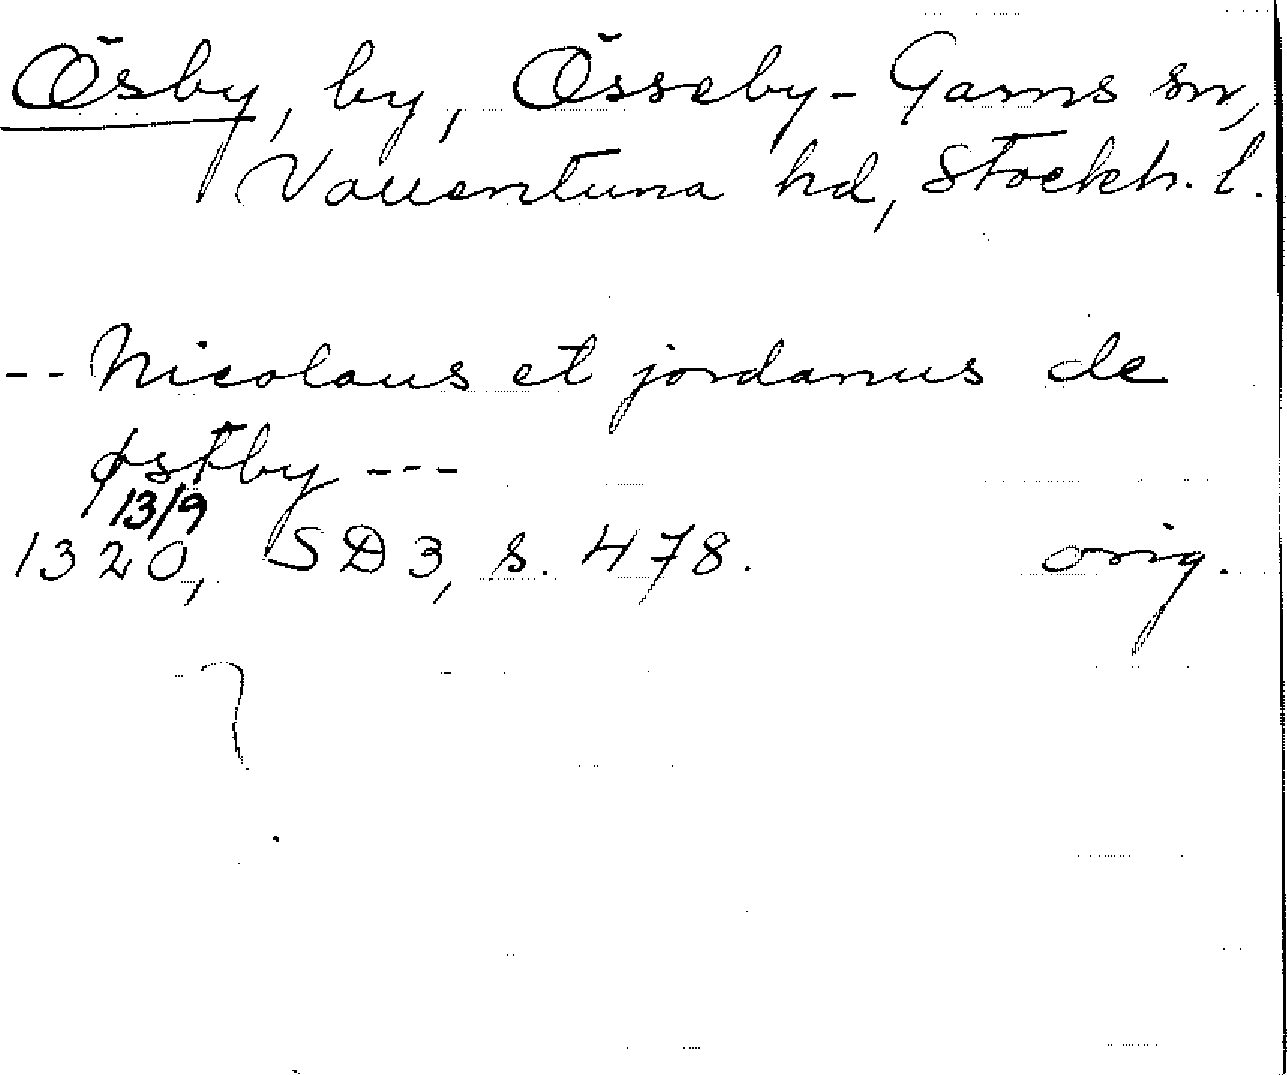 Ösby, by, Össeby-Garns sn,
Vallentuna hd, Stockh. l.
-- Nicolaus et jordanus de
østby ---
13/9
1320, SD3, s. 478. orig.